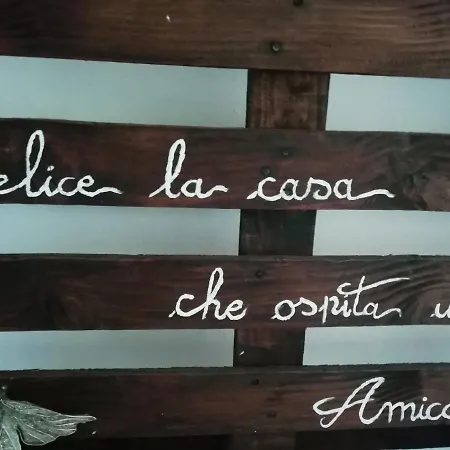 elice la casa
che ospita u
Amico